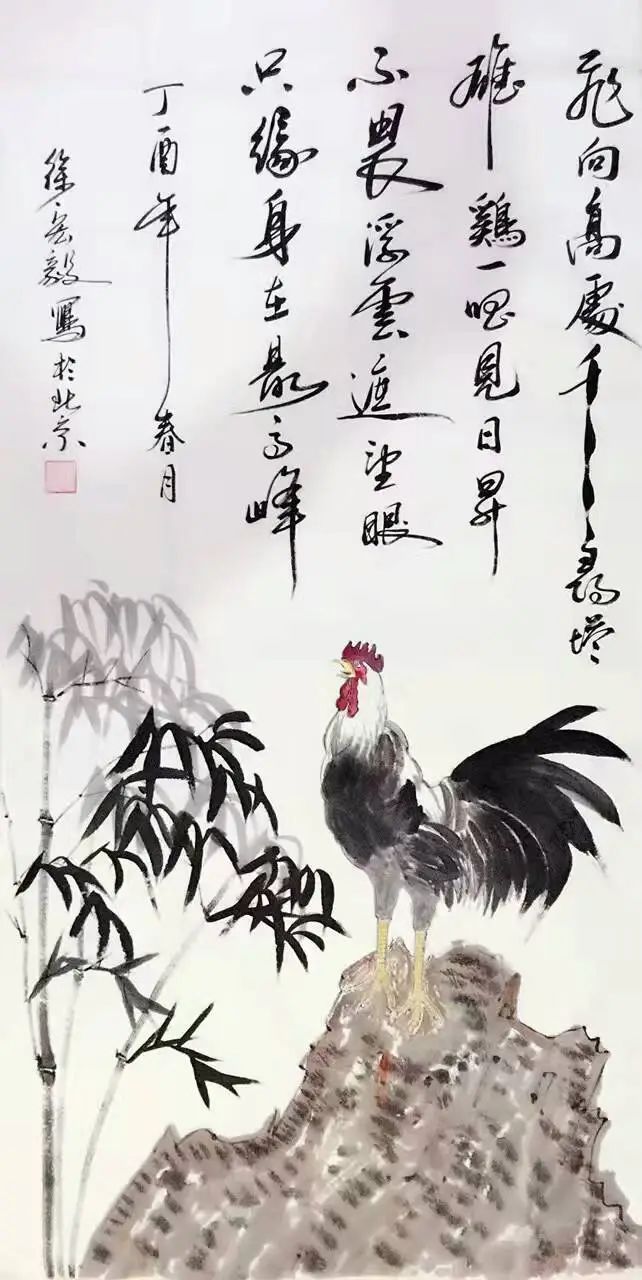 飛向高處千尋塔
雄鷄一唱見日昇
不畏浮雲遮望眼
只緣身在最高峰
丁酉年春月
徐宏毅寫於北京